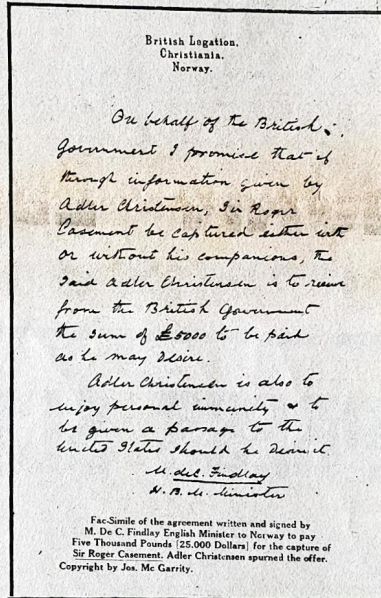 British Legation.
Christiania.
Norway.
On behalf of the British
Government I promise that if
through information given by
Adler Christensen, Sir Roger
Casement be captured either with
or without his companions, the
said Adler Christensen is to receive
from the British Government
the sum of £5000 to be paid
as he may desire.
Adler Christensen is also to
enjoy personal immunity & to
be given a passage to the
United States should he desire it
M. deC. Findlay
H. B. M. Minister
Fac-Simile of the agreement written and signed by
M. De C. Findlay English Minister to Norway to pay
Five Thousand Pounds [25.000 Dollars] for the capture of
Sir Roger Casement. Adler Christensen spurned the offer.
Copyright by Jos. Mc Garrity.